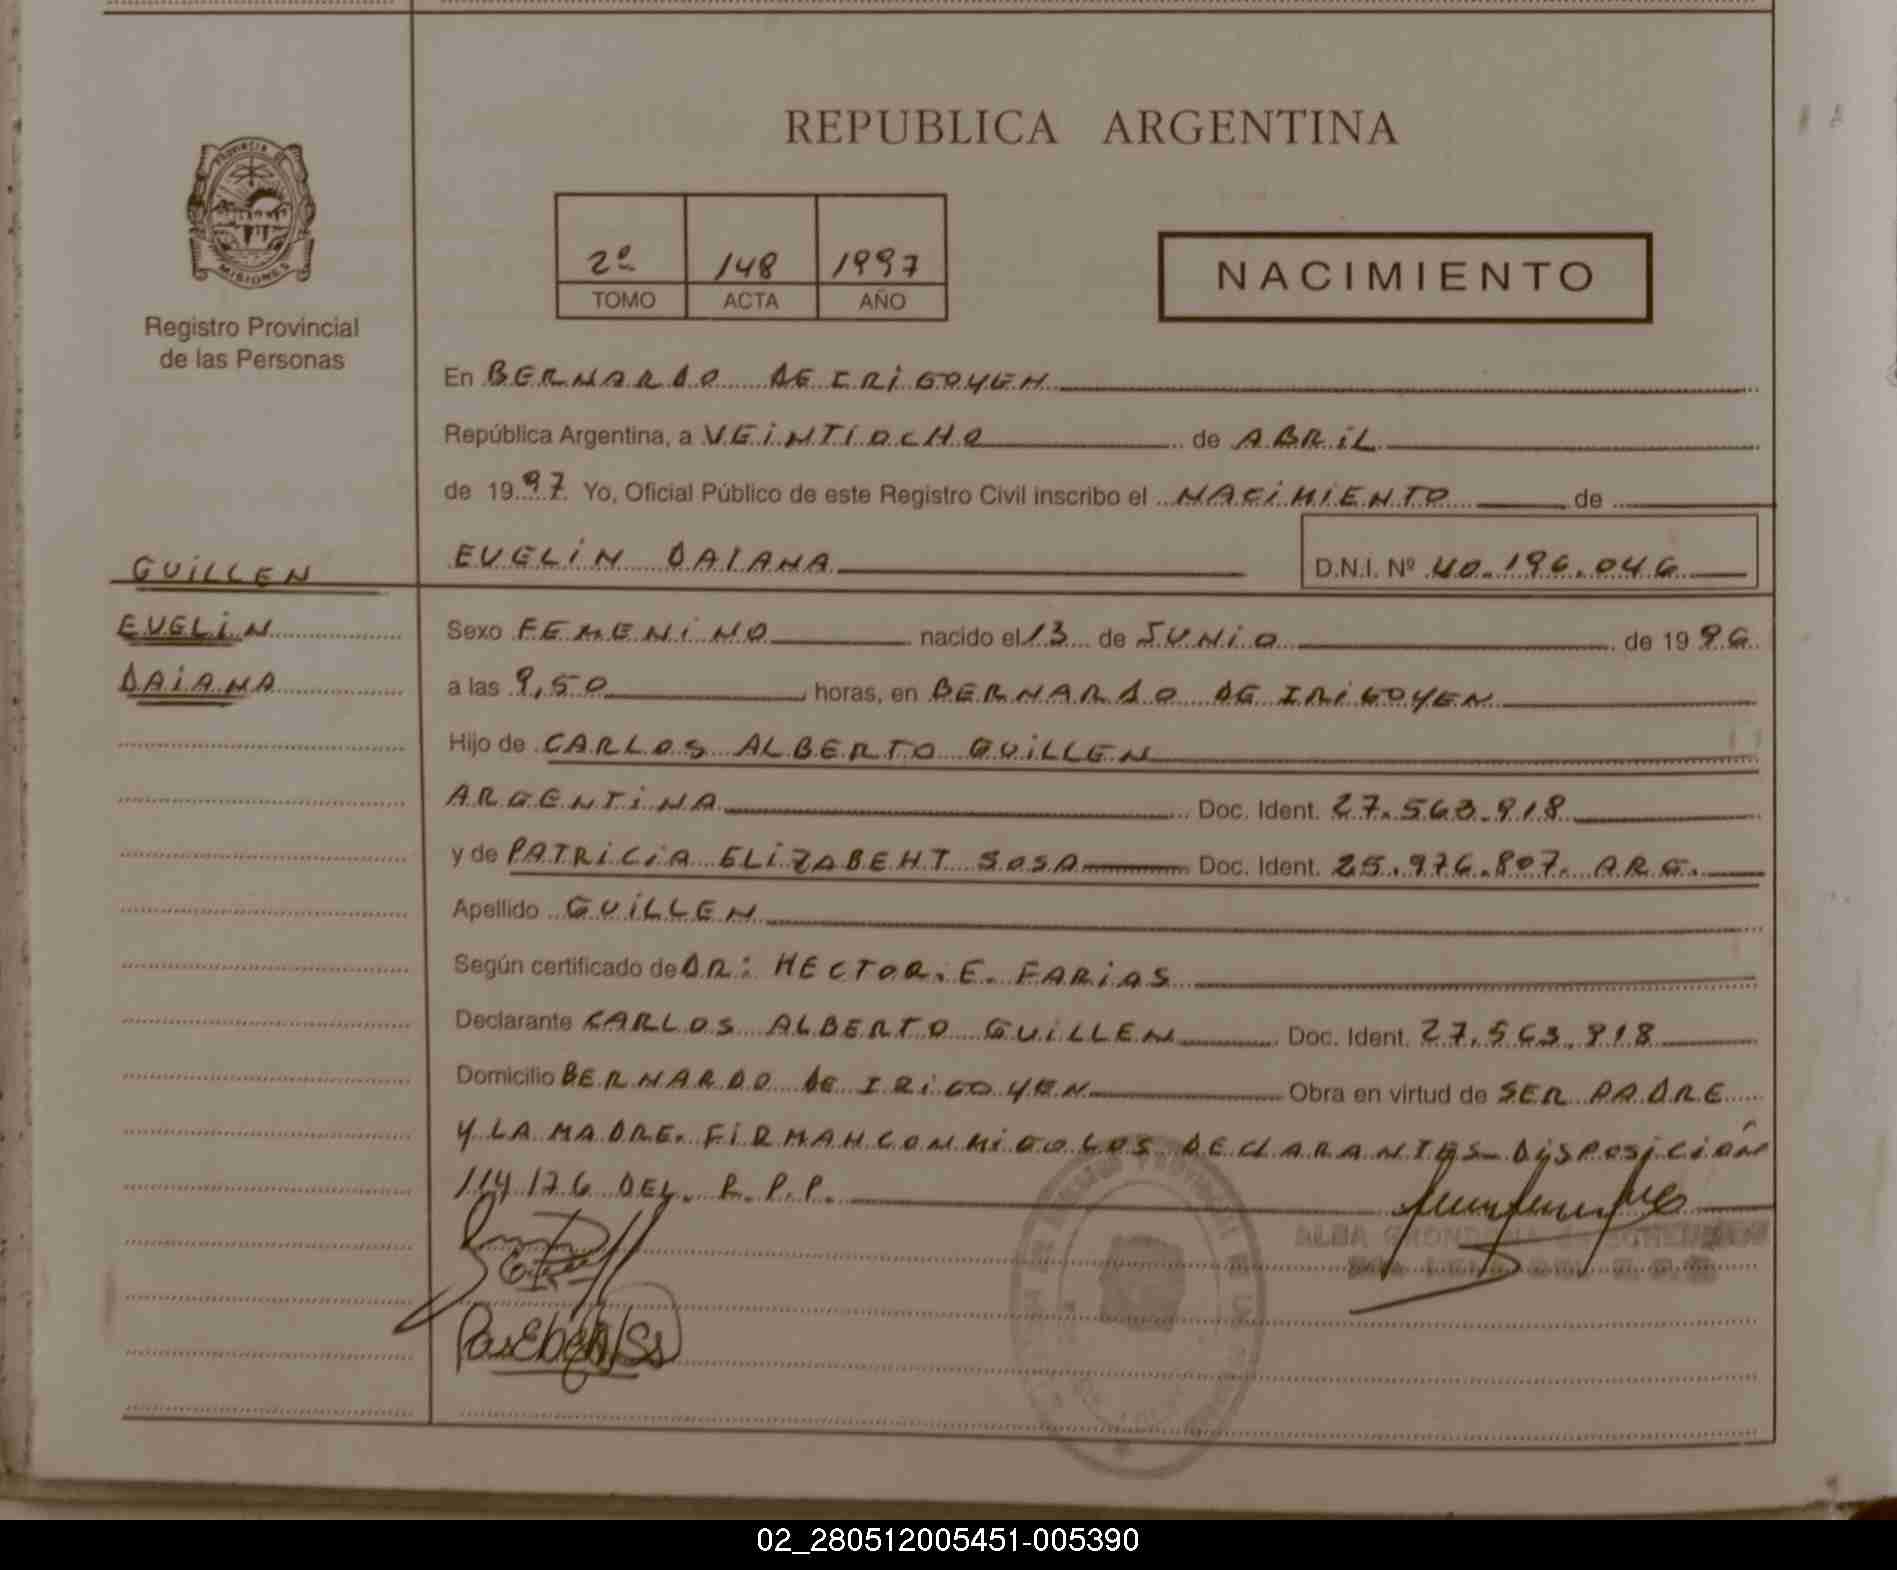 REPUBLICA ARGENTINA
PROVINCIA DE
MISIONES
Registro Provincial
de las Personas
2º 148 1997
TOMO ACTA AÑO
NACIMIENTO
En BERNARDO DE IRIGOYEN
República Argentina, a VEINTIOCHO de ABRIL
de 1997 Yo, Oficial Público de este Registro Civil inscribo el NACIMIENTO de
GUILLEN
EVELIN DAIANA D.N.I. Nº 40.196.046
EVELIN
Sexo FEMENINO nacido el 13 de JUNIO de 1996
DAIANA
a las 9,50 horas, en BERNARDO DE IRIGOYEN
Hijo de CARLOS ALBERTO GUILLEN
ARGENTINA Doc. Ident. 27.563.918
y de PATRICIA ELIZABEHT SOSA Doc. Ident. 25.976.807. ARG.
Apellido GUILLEN
Según certificado de DR: HECTOR.E. FARIAS
Declarante CARLOS ALBERTO GUILLEN Doc. Ident. 27.563.918
Domicilio BERNARDO DE IRIGOYEN Obra en virtud de SER PADRE
Y LA MADRE. FIRMAN CONMIGO LOS DECLARANTES DISPOSICION
114/76 DEL. R.P.P.
02_280512005451-005390